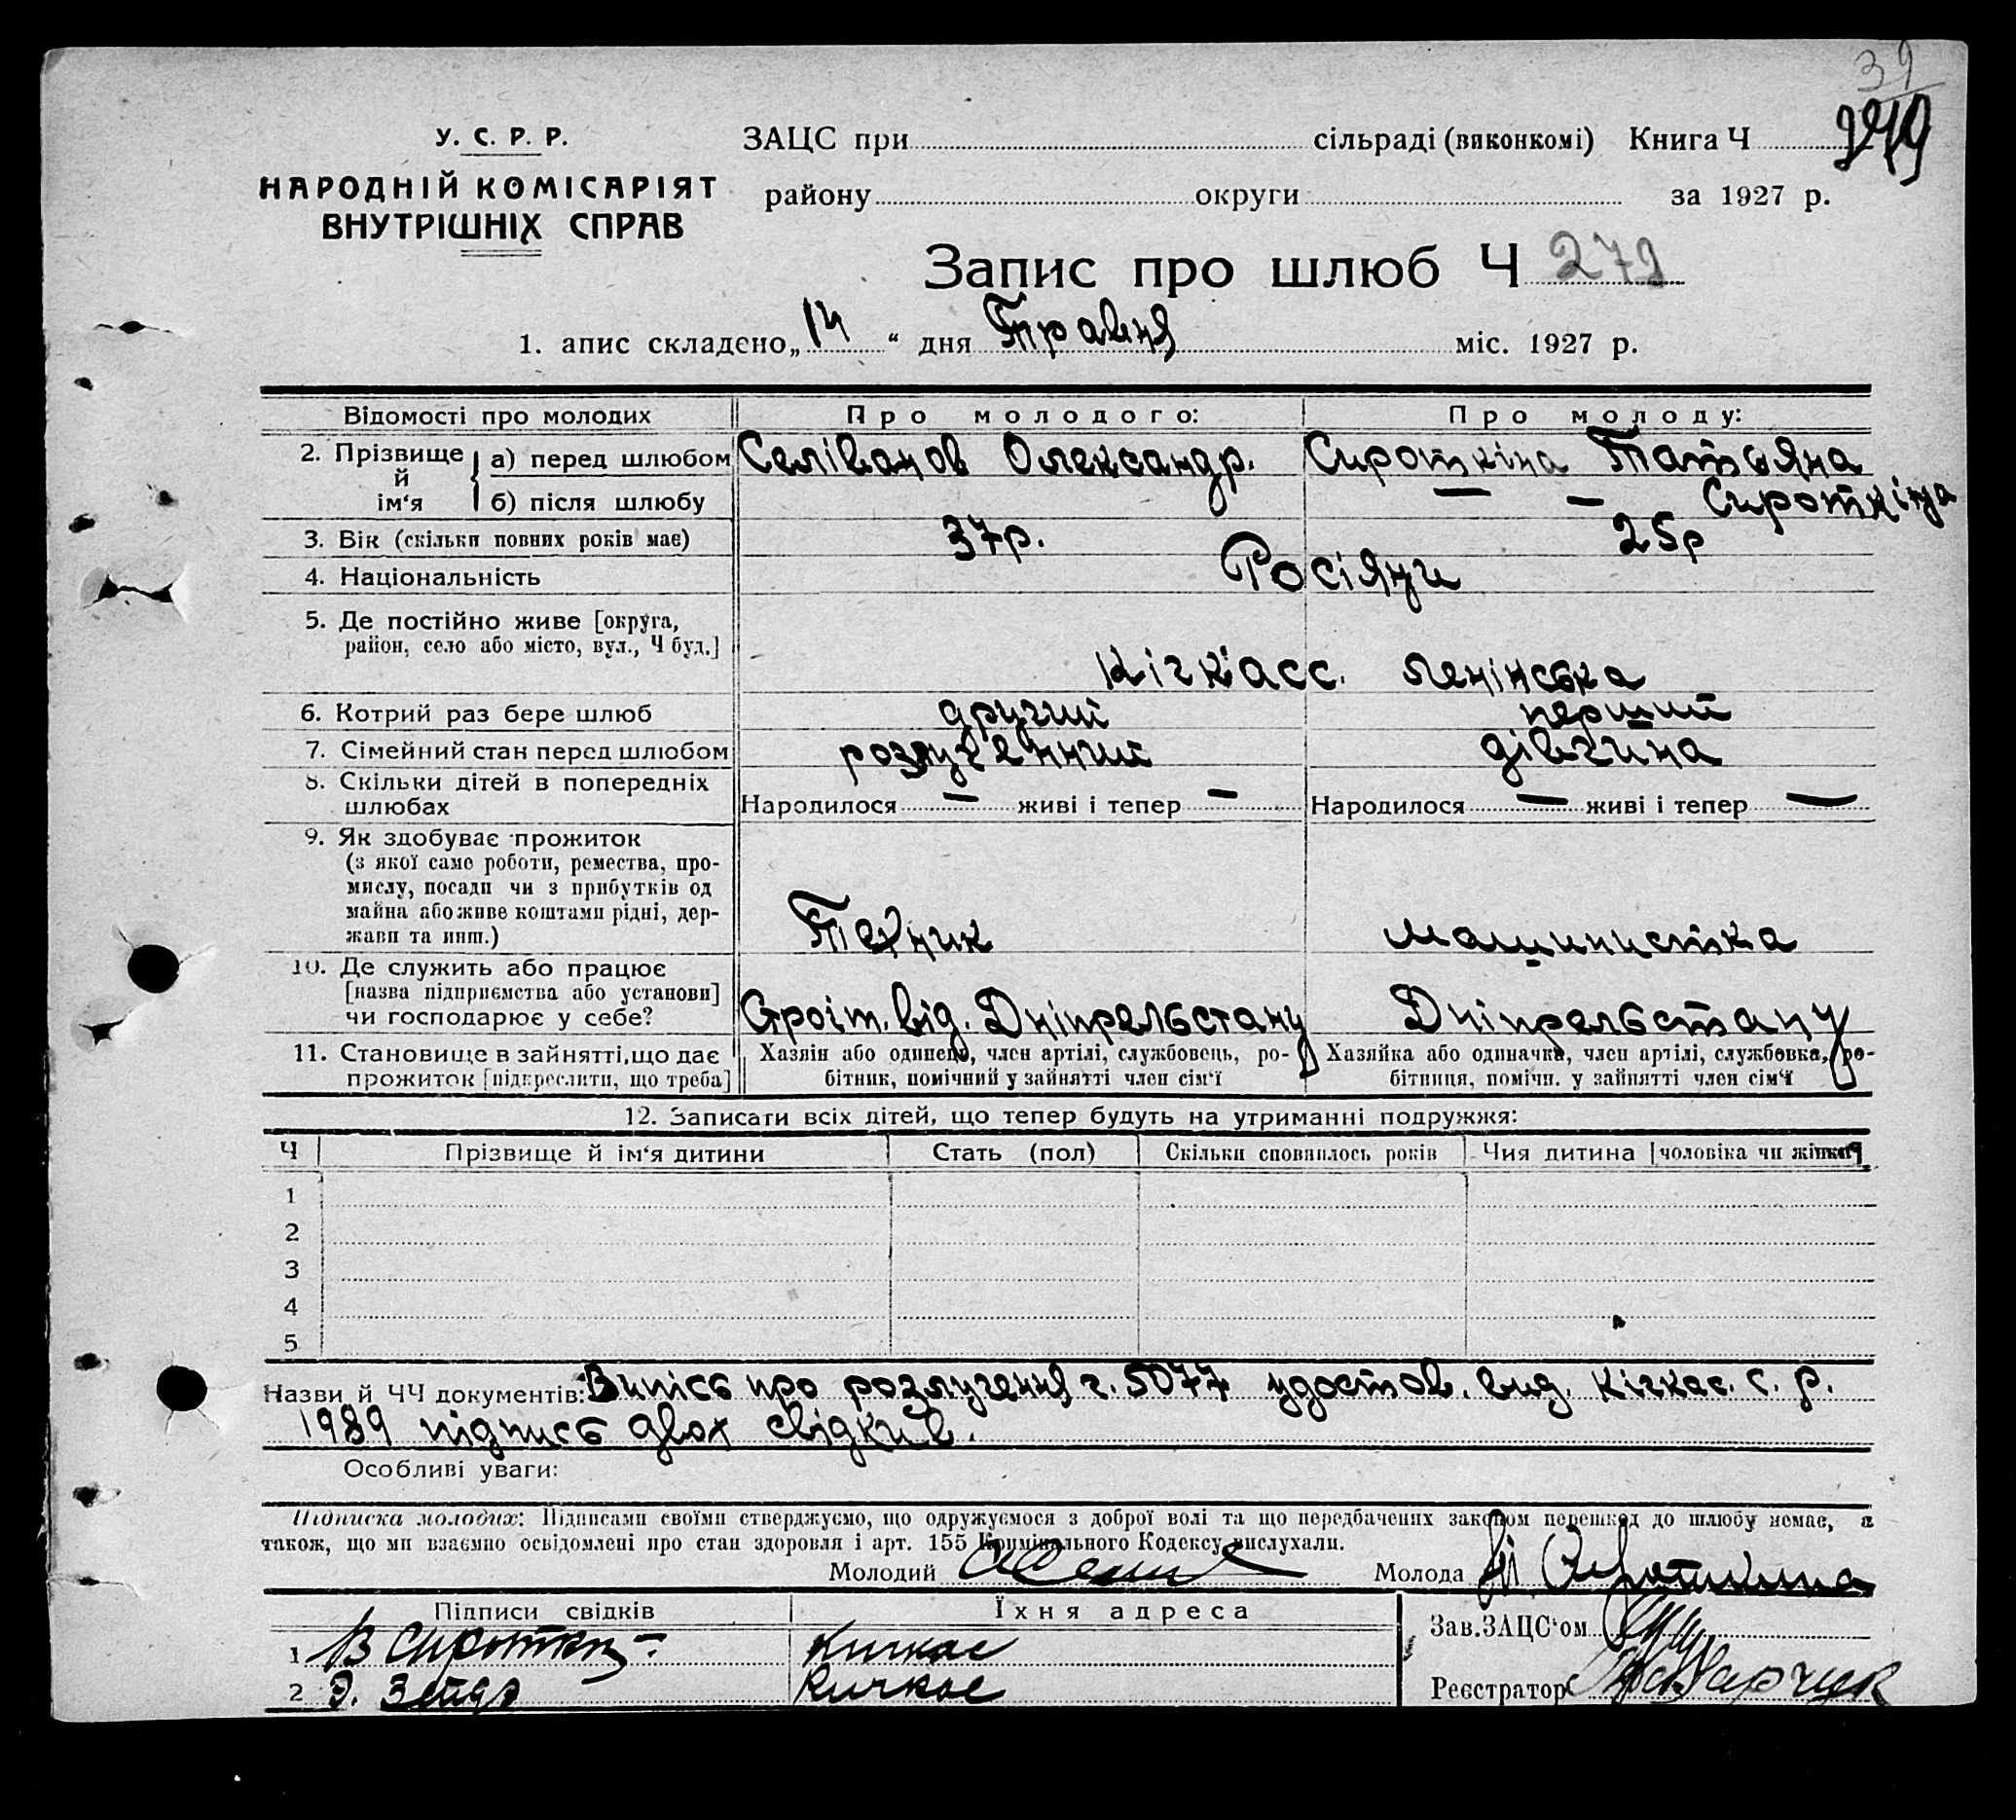 39
249
У. С. Р. Р.
НАРОДНІЙ КОМІСАРІЯТ
ВНУТРІШНІХ СПРАВ
ЗАЦС при сільраді (виконкомі) Книга Ч
району округи за 1927 р.
Запис про шлюб Ч 279
1. апис складєно „14“ дня Травня міс. 1927 р.
Відомості про молодих Про молодого: Про молоду:
2. Прізвище й ім‘я а) перед шлюбом Селіванов Олександр. Сироткіна Татьяна
б) після шлюбу — — Сироткіна
3. Вік (скільки повних років має) 37р. 25р
4. Національність Росіяни
5. Де постійно живе [округа,
район, село або місто, вул., Ч буд.] Кічкасс. Ленінська
6. Котрий раз бере шлюб другий перший
7. Сімейний стан перед шлюбом розлученний дівчина
8. Скільки дітей в попередніх
шлюбах Народилося — живі і тепер — Народилося — живі і тепер —
9. Як здобуває прожиток
(з якої саме роботи, ремества, про-
мислу, посади чи з прибутків од
майна або живе коштами рідні, дер-
жави та инш.) Техник машинистка
10. Де служить або працює
[назва підприємства або установи]
чи господарює у себе? Строіт. від. Дніпрельстану Дніпрельстану
11. Становище в зайнятті, що дає
прожиток [підкреслити, що треба]
Хазяїн або одинець, член артілі, службовець, ро-
бітник, помічний у зайнятті член сім‘ї
Хазяйка або одиначка, член артілі, службовка, ро-
бітниця, помічн. у зайнятті член сім‘ї
12. Записати всіх дітей, що тепер будуть на утриманні подружжя:
Ч Прізвище й ім‘я дитини Стать (пол) Скільки сповнилось років Чия дитина [чоловіка чи жінки]
1
2
3
4
5
Назви й ЧЧ документів: Випісь про розлучення ч. 5077 удостов. вид. Кічкас. с. р.
1989 підпись двох свідків.
Особливі уваги:
Підписка молодих: Підписами своїми стверджуємо, що одружуємося з доброї волі та що передбачених законом перешкод до шлюбу немає, а
також, що ми взаємно освідомлені про стан здоровля і арт. 155 Кримінального Кодексу вислухали.
Молодий Молода Сироткина
Підписи свідків Їхня адреса
Зав.ЗАЦС‘ом
1 В Сиротки Кичкас
2 Э. Кичкас
Реєстратор